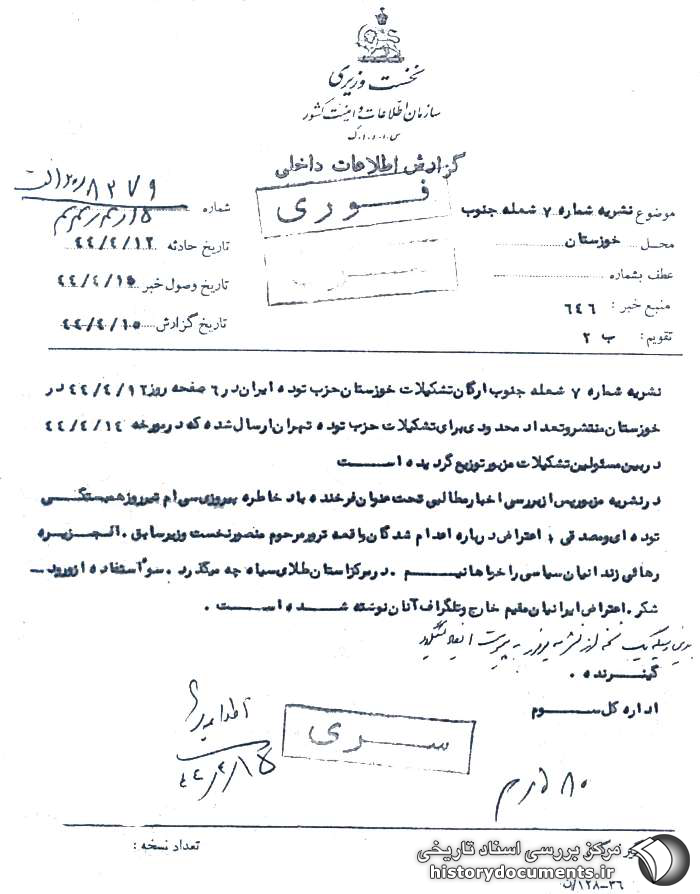 نخست وزیری
سازمان اطلاعات و امنیت کشور
س.ا.و.ا.ک
گزارش اطلاعات داخلی
فوری
موضوع نشریه شماره ۷ شعله جنوب
محل خوزستان
عطف بشماره
منبع خبر : ۶۴۶
تقویم : ب ۲
شماره
تاریخ حادثه ۴۴/۴/۱۲
تاریخ وصول خبر ۴۴/۴/۱۵
تاریخ گزارش ۴۴/۴/۱۵
نشریه شماره ۷ شعله جنوب ارگان تشکیلات خوزستان حزب توده ایران در ۶ صفحه روز ۴۴/۴/۱۲ در
خوزستان منتشر و تعداد محدودی برای تشکیلات حزب توده تهران ارسال شده که در مورخه ۴۴/۴/۱۴
در بین مسئولین تشکیلات مزبور توزیع گردیده است
در نشریه مزبور پس از بررسی اخبار مطالبی تحت عنوان فرخنده باد خاطره پیروزی سی ام تیر روز همبستگی
توده ای و مصدقی ، اعتراض درباره اعدام شدگان واقعه ترور مرحوم منصور نخست وزیر سابق . الجزیره
رهائی زندانیان سیاسی را خواهانیم . در مرکز استان طلای سیاه چه میگذرد . سوء استفاده از ورود
شکر . اعتراض ایرانیان مقیم خارج و تلگراف آنان نوشته شده است .
یک نسخه از نشریه مزبور به پیوست ایفاد میگردد
گیرنده .
اداره کل سوم
سری
۴۴/۴/۱۵
تعداد نسخه :
۳۶-۱۲۸/ن
مرکز بررسی اسناد تاریخی
historydocuments.ir